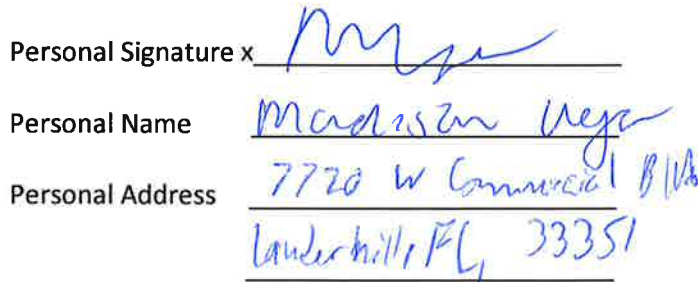 Personal Signature x
Personal Name Madison Vega
Personal Address 7720 W Commercial Blvd
Lauderhill, FL, 33351